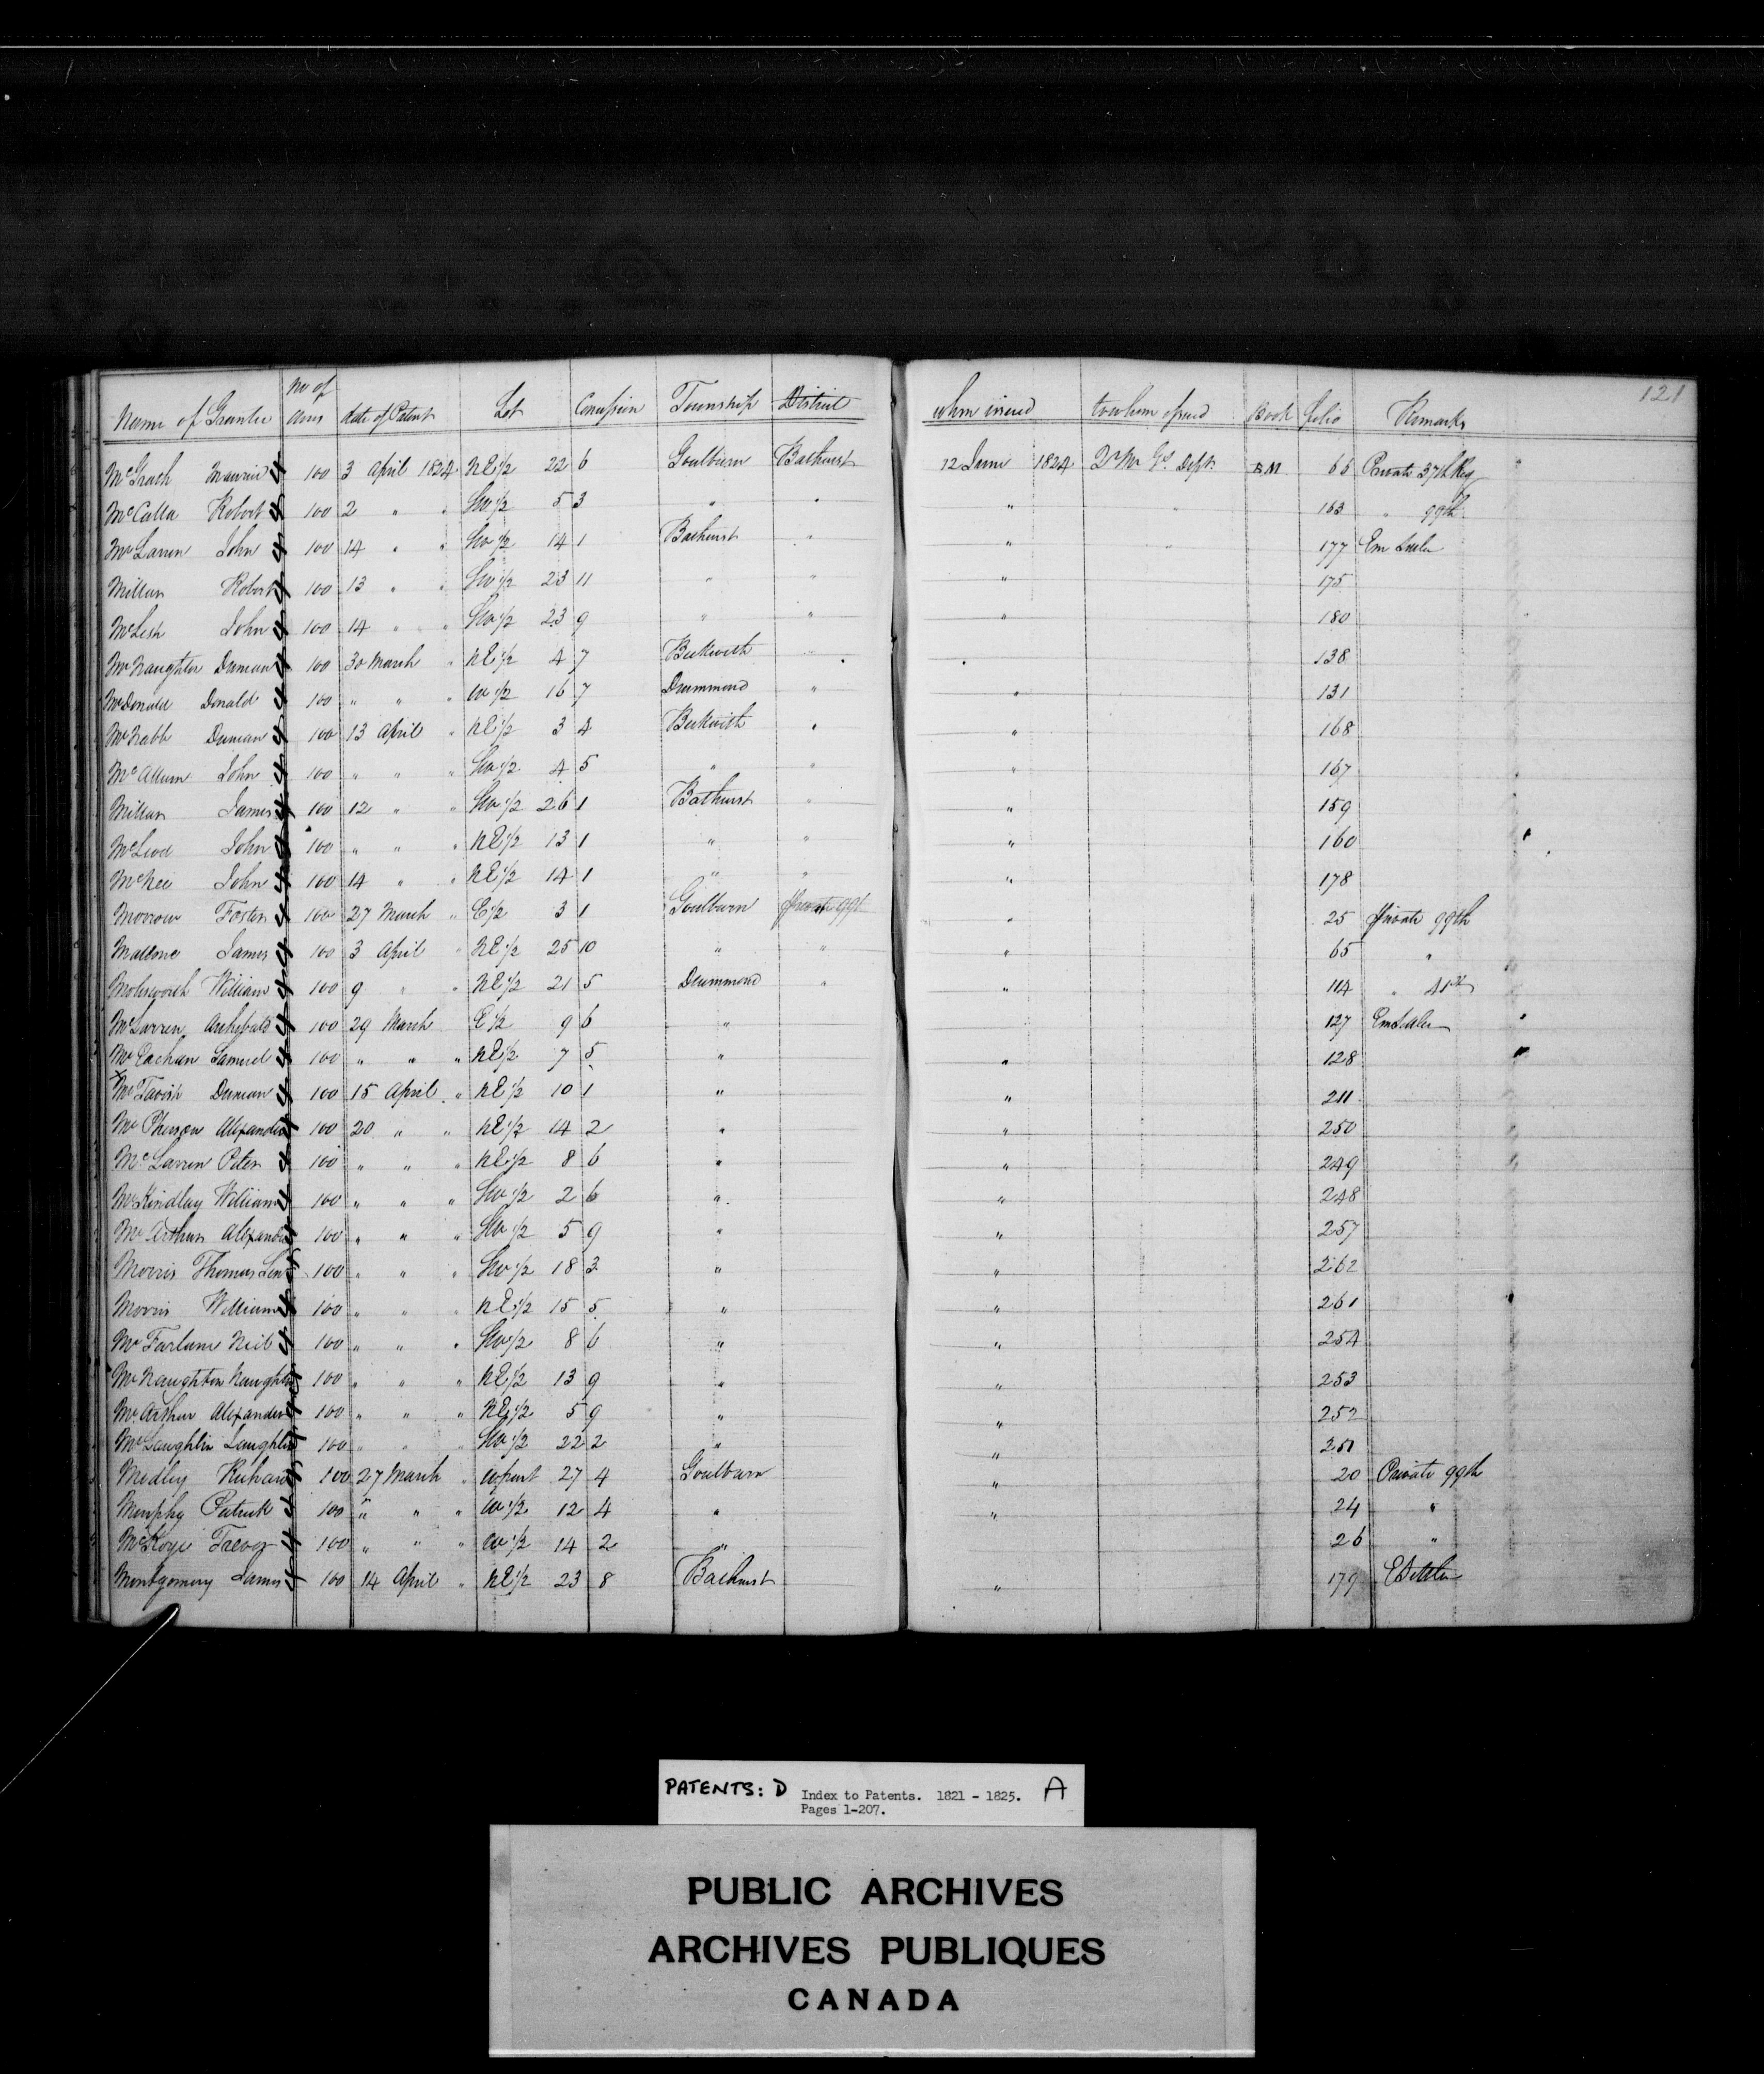 121
Name of Grantee No of Acres date of Patent Lot Concession Township District when issued to whom issued Book folio Remarks
McGrath Maurice 100 3 April 1824 NE 1/2 22 6 Goulburn Bathurst 12 June 1824 Qr Mr Gl Dept BM 66 Private 37th Reg
McCalla Robert 100 2 " " SW 1/2 5 3 " " " " 163 " 99th
McLaren John 100 14 " " SW 1/2 14 1 Bathurst " " " 177 Em Settler
Millar Robert 100 13 " " SW 1/2 23 11 " " " 175
McLesh John 100 14 " " SW 1/2 23 9 " " " 180
McNaughton Duncan 100 30 March " NE 1/2 4 7 Beckwith " " 138
McDonald Donald 100 " " " W 1/2 16 7 Drummond " " 131
McNabb Duncan 100 13 April " NE 1/2 3 4 Beckwith " " 168
McAllum John 100 " " " SW 1/2 4 5 " " " 167
Millar James 100 12 " " SW 1/2 26 1 Bathurst " " 159
McLeod John 100 " " " NE 1/2 13 1 " " " 160
McNee John 100 14 " " NE 1/2 14 1 " " " 178
Morrow Foster 100 27 March " E 1/2 3 1 Goulburn Private 99th " 25 Private 99th
Malone James 100 3 April " NE 1/2 25 10 " " " 65 "
Molesworth William 100 9 " " NE 1/2 21 5 Drummond " " 114 " 41st
McLarren Archybald 100 29 March E 1/2 9 6 " " 127 Em Settler
McEachan Samuel 100 " " " NE 1/2 7 5 " " 128
x McTavish Duncan 100 15 April " NE 1/2 10 1 " " 211
McPherson Alexander 100 20 " " NE 1/2 14 2 " " 250
McLarren Peter 100 " " " NE 1/2 8 6 " " 249
McKindlay William 100 " " " SW 1/2 2 6 " " 248
McArthur Alexander 100 " " " SW 1/2 5 9 " " 257
Morris Thomas Senr 100 " " " SW 1/2 18 3 " " 262
Morris William 100 " " " NE 1/2 15 5 " " 261
McFarlane Neil 100 " " " SW 1/2 8 6 " " 254
McNaughton Naughton 100 " " " NE 1/2 13 9 " " 253
McArthur Alexander 100 " " " NE 1/2 5 9 " " 252
McLaughlin Laughlin 100 " " " SW 1/2 22 2 " " 251
Medley Richard 100 27 March " W part 27 4 Goulburn " 20 Private 99th
Murphy Patrick 100 " " " W 1/2 12 4 " " 24 "
McKoye Trevor 100 " " " W 1/2 14 2 " 26 "
Montgomery James 100 14 April " NE 1/2 23 8 Bathurst " 179 E Settler
PATENTS: D Index to Patents. 1821 - 1825. A
Pages 1-207.
PUBLIC ARCHIVES
ARCHIVES PUBLIQUES
CANADA